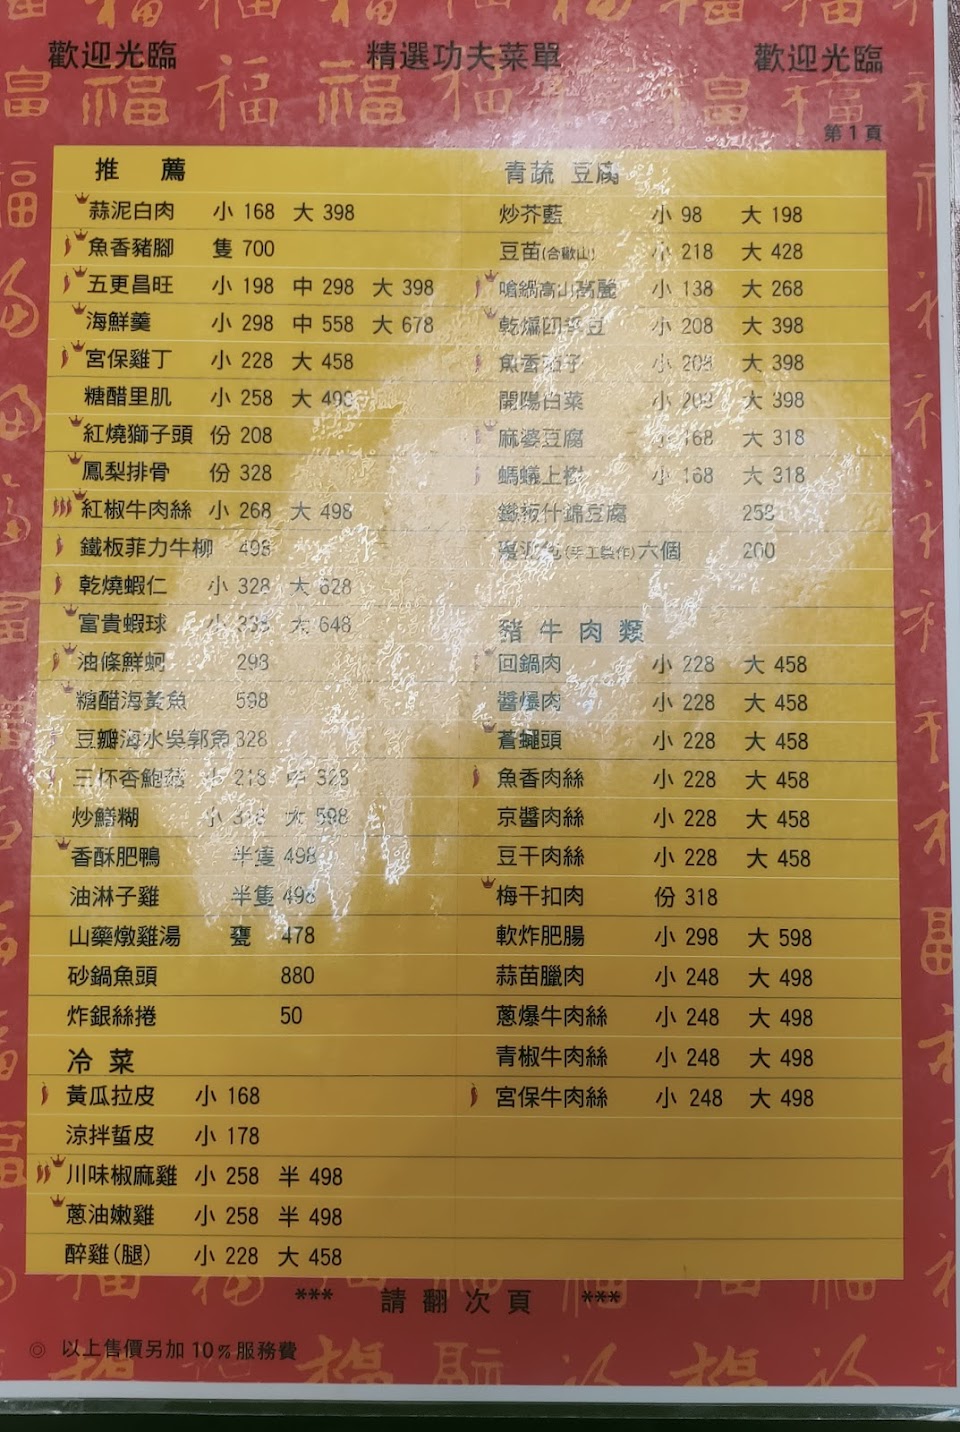 歡迎光臨 精選功夫菜單 歡迎光臨
第1頁
推薦
蒜泥白肉 小 168 大 398
魚香豬腳 隻 700
五更昌旺 小 198 中 298 大 398
海鮮羹 小 298 中 558 大 678
宮保雞丁 小 228 大 458
糖醋里肌 小 258 大 498
紅燒獅子頭 份 208
鳳梨排骨 份 328
紅椒牛肉絲 小 268 大 498
鐵板菲力牛柳 498
乾燒蝦仁 小 328 大 628
富貴蝦球 小 338 大 648
油條鮮蚵 298
糖醋海黃魚 598
豆瓣海水吳郭魚 328
三杯杏鮑菇 小 218 中 328
炒鱔糊 小 318 大 598
香酥肥鴨 半隻 498
油淋子雞 半隻 498
山藥燉雞湯 甕 478
砂鍋魚頭 880
炸銀絲捲 50
冷菜
黃瓜拉皮 小 168
涼拌蜇皮 小 178
川味椒麻雞 小 258 半 498
蔥油嫩雞 小 258 半 498
醉雞(腿) 小 228 大 458
青蔬 豆腐
炒芥藍 小 98 大 198
豆苗(合歡山) 小 218 大 428
嗆鍋高山高麗 小 138 大 268
乾煸四季豆 小 208 大 398
魚香茄子 小 208 大 398
開陽白菜 小 208 大 398
麻婆豆腐 小 168 大 318
螞蟻上樹 小 168 大 318
鐵板什錦豆腐 258
(手工製作)六個 200
豬牛肉類
回鍋肉 小 228 大 458
醬爆肉 小 228 大 458
蒼蠅頭 小 228 大 458
魚香肉絲 小 228 大 458
京醬肉絲 小 228 大 458
豆干肉絲 小 228 大 458
梅干扣肉 份 318
軟炸肥腸 小 298 大 598
蒜苗臘肉 小 248 大 498
蔥爆牛肉絲 小 248 大 498
青椒牛肉絲 小 248 大 498
宮保牛肉絲 小 248 大 498
*** 請翻次頁 ***
◎ 以上售價另加10%服務費